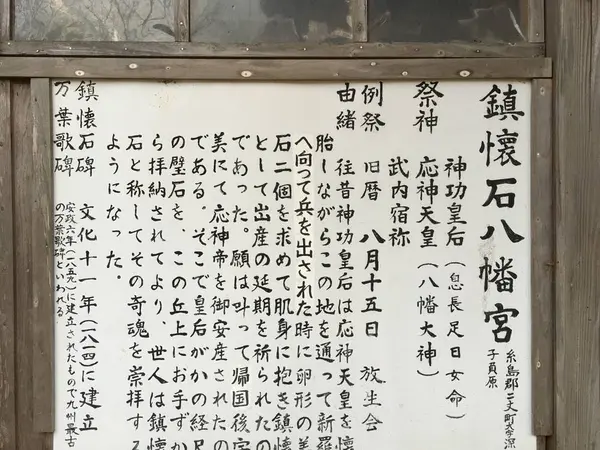 鎮懐石八幡宮
糸島郡二丈町大字深
子負原
祭神 神功皇后(息長足日女命)
応神天皇(八幡大神)
武内宿祢
例祭 旧暦 八月十五日 放生会
由緒 往昔神功皇后は応神天皇を懐
胎しながらこの地を通って新羅
へ向って兵を出された時に卵形の美
石二個を求めて肌身に抱き鎮懐
として出産の延期を祈られたの
であった。願は叶って帰国後宇
美にて応神帝を御安産されたの
である。そこで皇后がかの径尺
の璧石を、この丘上にお手ずか
ら拝納されてより、世人は鎮懐
石と称してその奇魂を崇拝する
ようになった。
鎮懐石碑 文化十一年(一八一四)に建立
万葉歌碑 安政六年(一八五九)に建立されたもので九州最古
の万葉歌碑といわれる